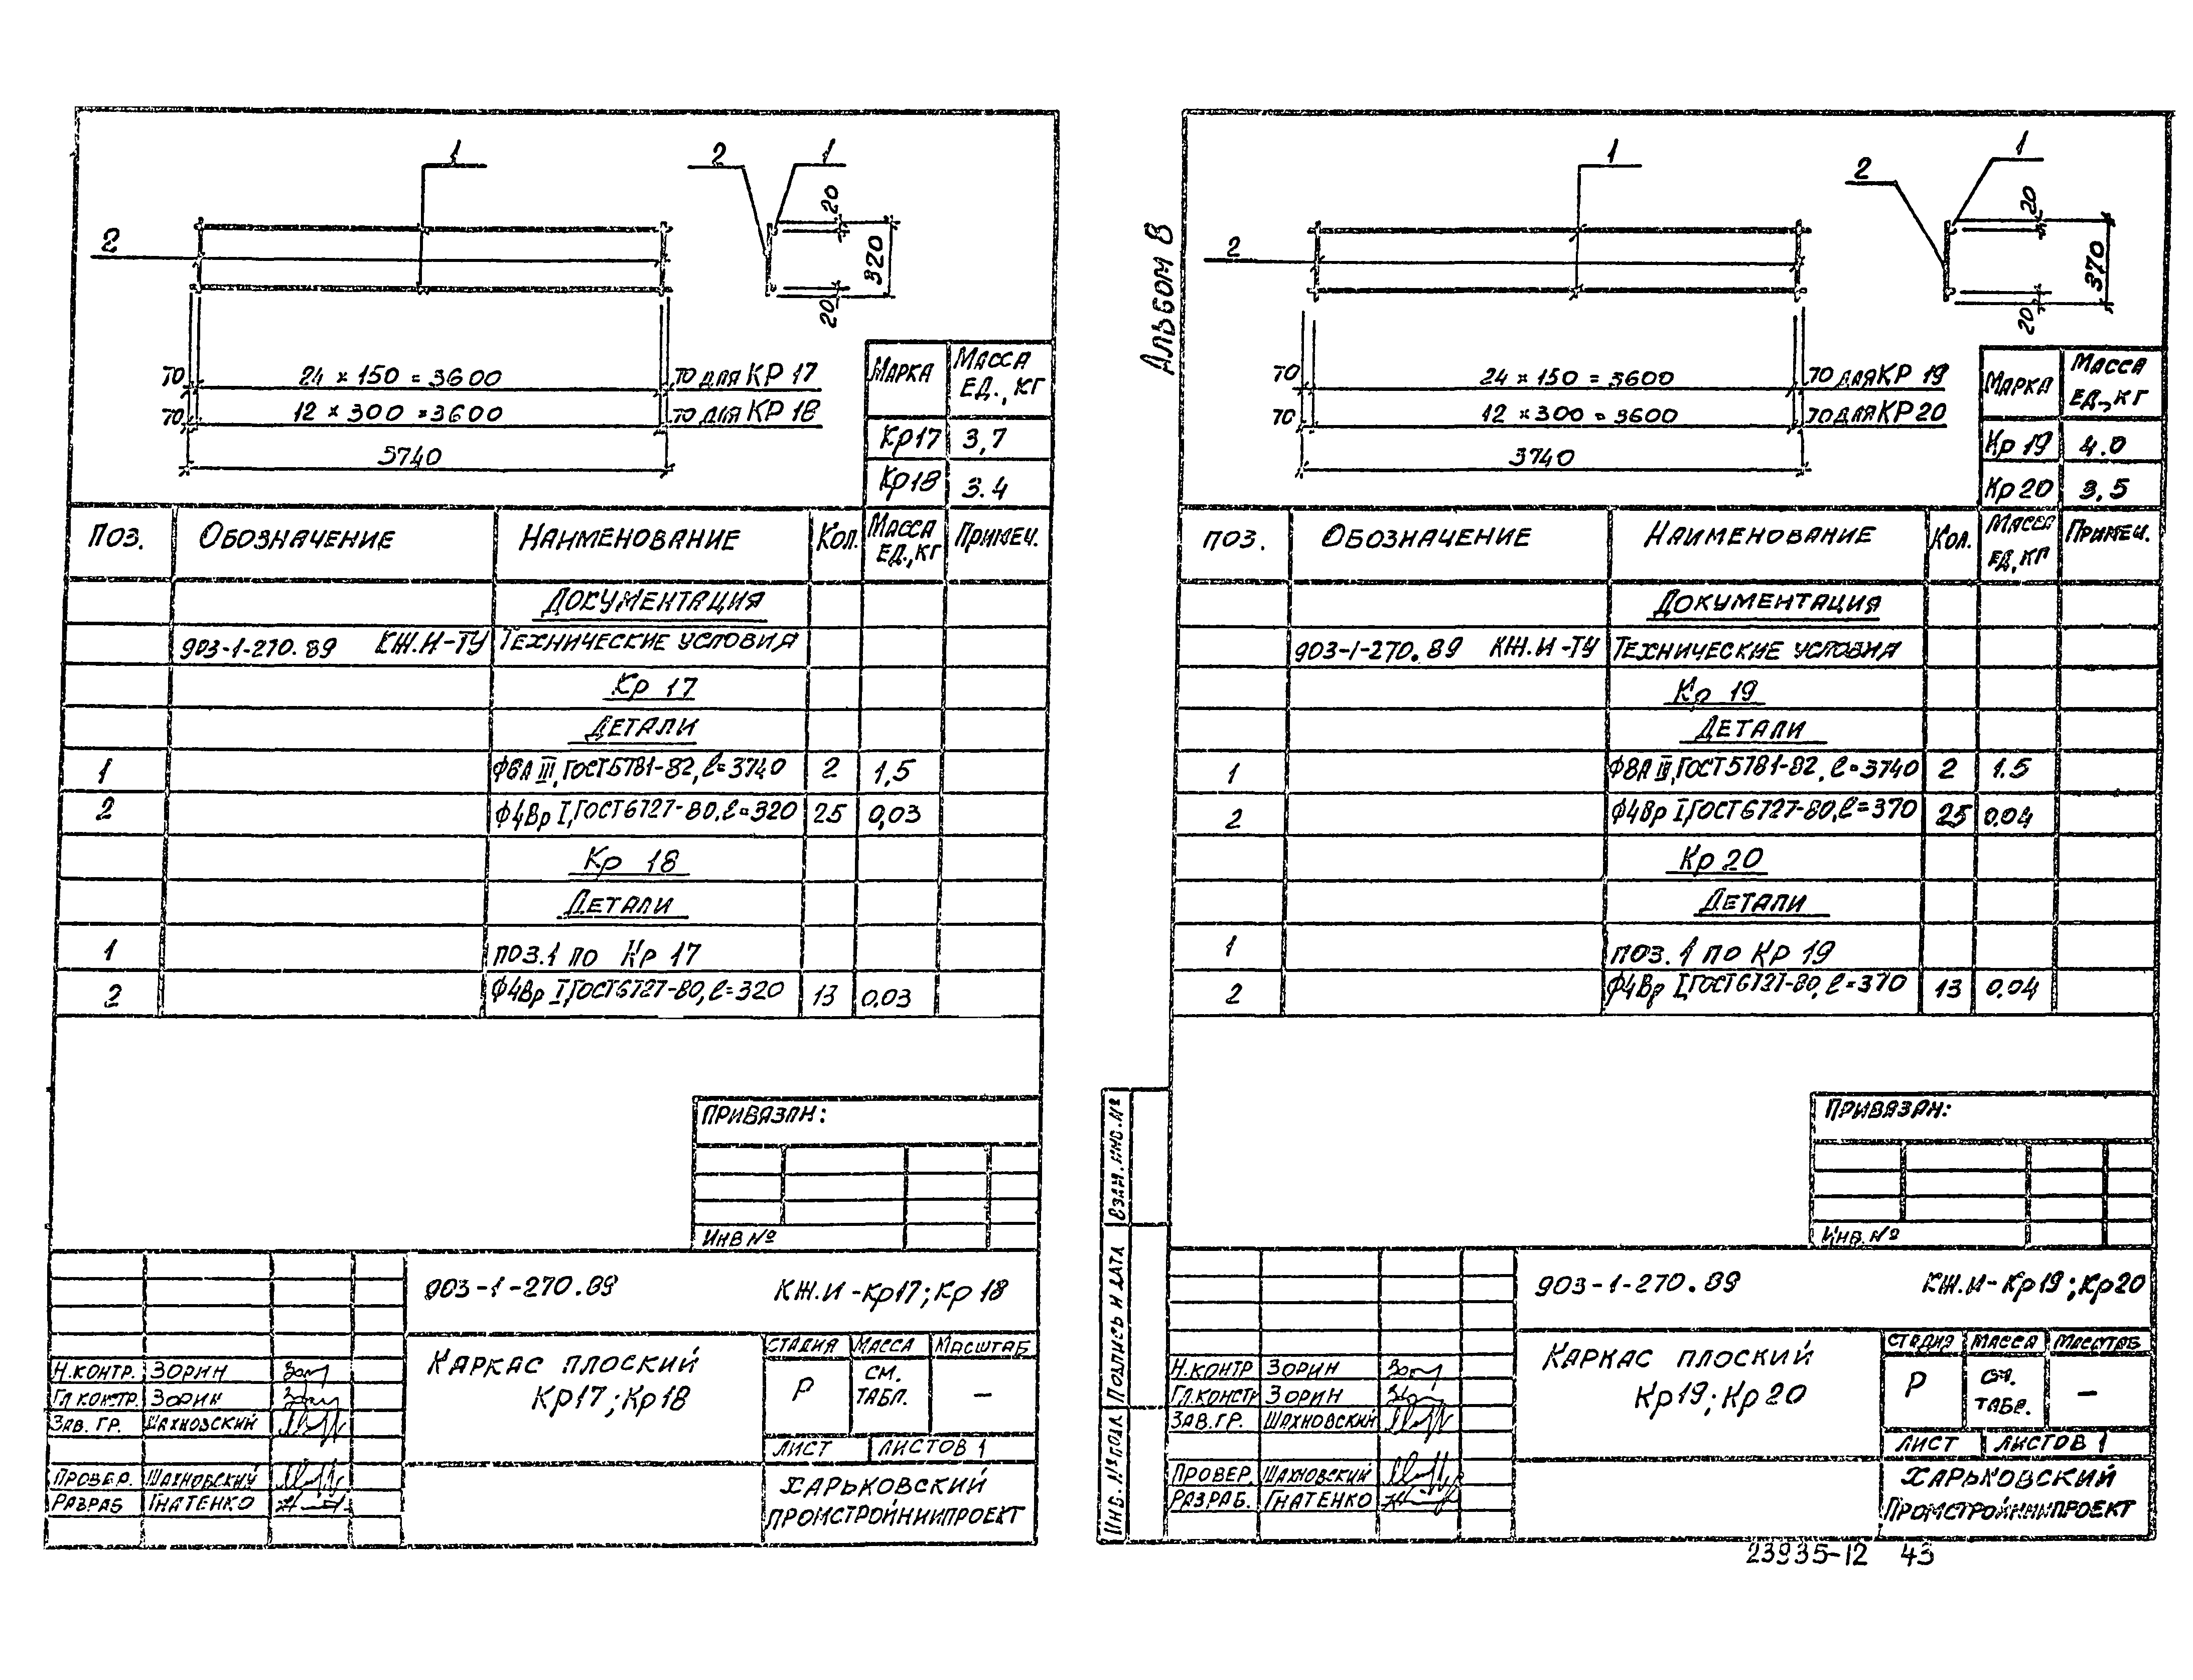 1
2
1
2
20
320
20
70 24 × 150 = 3600 70 для КР 17
70 12 × 300 = 3600 70 для КР 18
3740
Марка Масса ед., кг
Кр17 3,7
Кр18 3.4
Поз. Обозначение Наименование Кол. Масса ед., кг Примеч.
Документация
903-1-270.89 КЖ.И-ТУ Технические условия
Кр 17
Детали
1 Ф8А III, ГОСТ 5781-82, ℓ=3740 2 1,5
2 Ф4Вр I, ГОСТ 6727-80, ℓ=320 25 0,03
Кр 18
Детали
1 поз.1 по Кр 17
2 Ф4Вр I, ГОСТ 6727-80, ℓ=320 13 0.03
Привязан:
Инв №
903-1-270.89 КЖ.И-Кр17; Кр 18
Каркас плоский
Кр17; Кр18
Стадия Масса Масштаб
Р см. табл. –
Лист Листов 1
Харьковский
Промстройниипроект
Н.контр. Зорин
Гл констр. Зорин
Зав. гр. Шахновский
Провер. Шахновский
Разраб Гнатенко
Альбом 8
1
2
1
2
20
370
20
70 24 × 150 = 3600 70 для КР 19
70 12 × 300 = 3600 70 для КР 20
3740
Марка Масса ед., кг
Кр 19 4.0
Кр 20 3,5
Поз. Обозначение Наименование Кол. Масса ед., кг Примеч.
Документация
903-1-270.89 КЖ.И-ТУ Технические условия
Кр 19
Детали
1 Ф8А III, ГОСТ 5781-82, ℓ=3740 2 1.5
2 Ф4Вр I, ГОСТ 6727-80, ℓ=370 25 0.04
Кр 20
Детали
1 поз.1 по Кр 19
2 Ф4Вр I, ГОСТ 6727-80, ℓ=370 13 0.04
Привязан:
Инв. №
Взам. инв. №
Подпись и дата
Инв. № подл
903-1-270.89 КЖ.И-Кр19; Кр20
Каркас плоский
Кр19; Кр20
Стадия Масса Масштаб
Р см. табл. –
Лист Листов 1
Харьковский
Промстройниипроект
Н.контр Зорин
Гл.констр Зорин
Зав. гр. Шахновский
Провер. Шахновский
Разраб. Гнатенко
23935-12 43